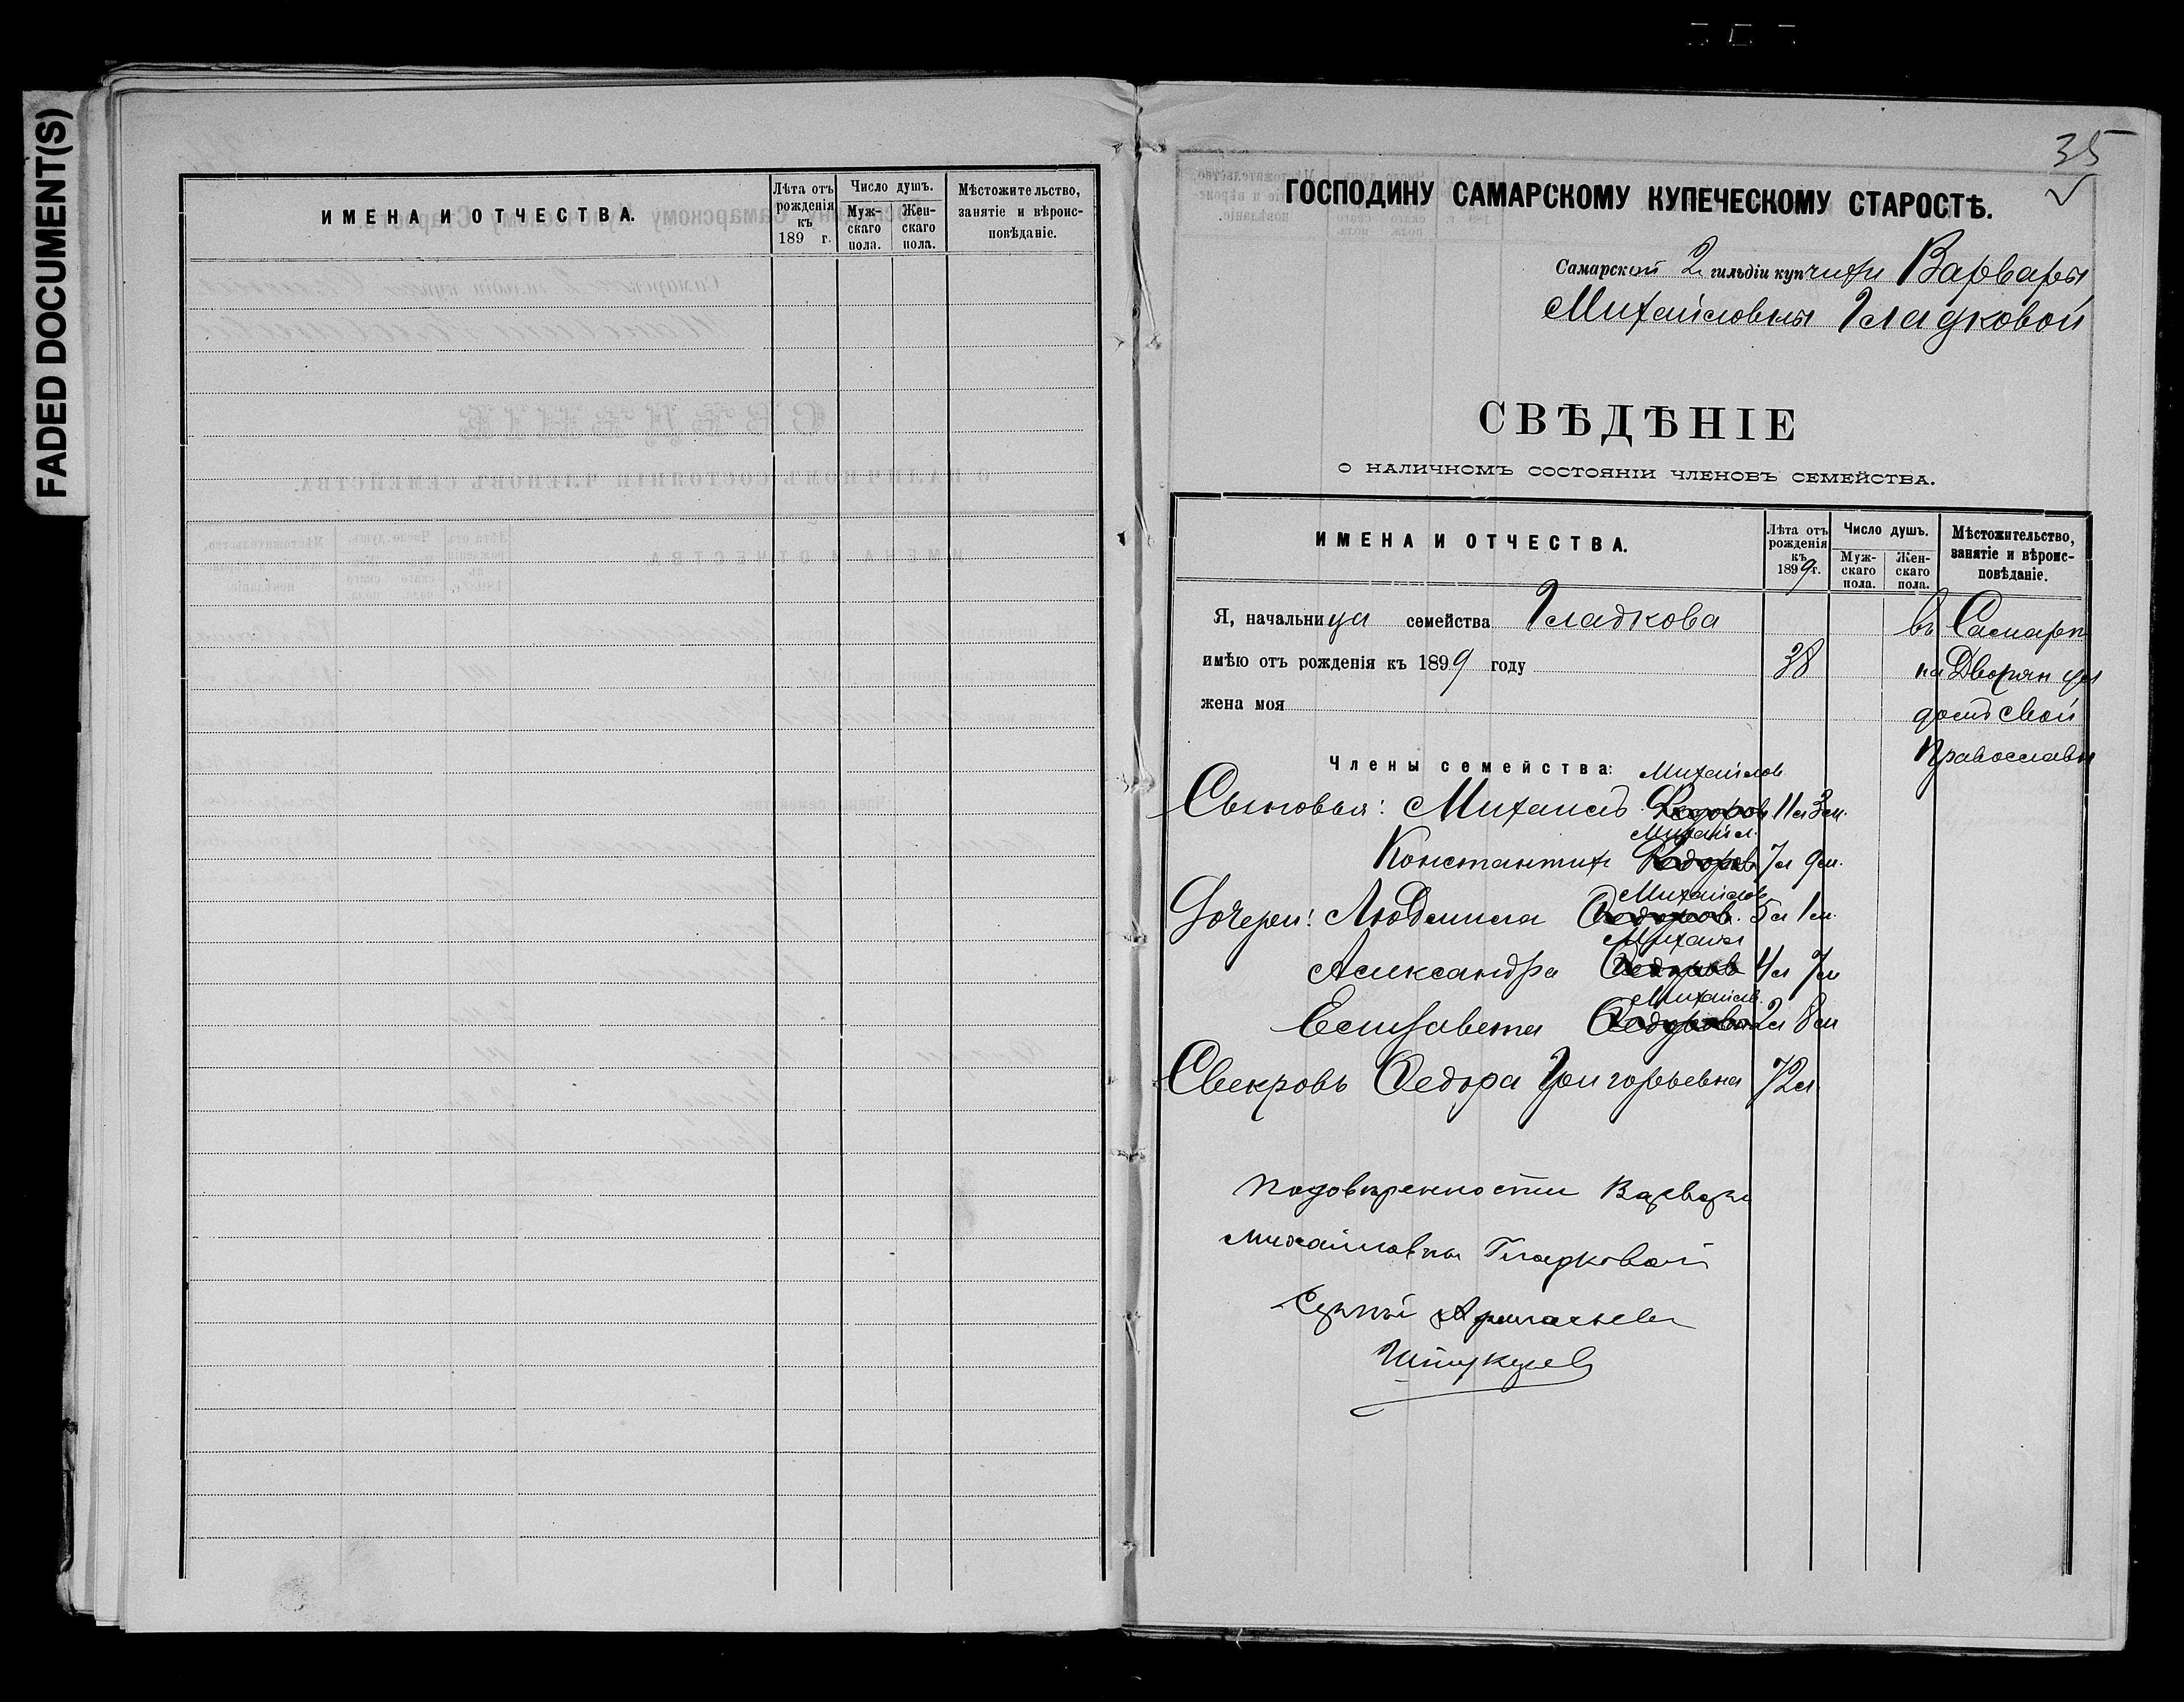 FADED DOCUMENT(S)
ИМЕНА И ОТЧЕСТВА.
Лѣта отъ рожденія къ 189 г.
Число душъ.
Мужскаго пола.
Женскаго пола.
Мѣстожительство, занятіе и вѣроисповѣданіе.
35
ГОСПОДИНУ САМАРСКОМУ КУПЕЧЕСКОМУ СТАРОСТѢ.
Самарской 2 гильдіи купчихи Варвары
Михайловны Гладковой
СВѢДѢНІЕ
О НАЛИЧНОМЪ СОСТОЯНІИ ЧЛЕНОВЪ СЕМЕЙСТВА.
ИМЕНА И ОТЧЕСТВА.
Лѣта отъ рожденія къ 1899 г.
Число душъ.
Мужскаго пола.
Женскаго пола.
Мѣстожительство, занятіе и вѣроисповѣданіе.
Я, начальница семейства Гладкова въ Самарѣ
имѣю отъ рожденія къ 1899 году 38 на Дворян ул
жена моя домъ свой
Православн
Члены семейства:
Михайлов
Сыновья: Михаилъ Федоров 11 л 3 м.
Михайл.
Константин Федоров 7 л 9 м.
Михайлов
Дочери: Людмила Федоров. 5 л 1 м.
Михайл
Александра Федоров 4 л 7 м
Михайлов.
Елизавета Федоровна 2 л 8 м
Свекровь Федора Григорьевна 72 л.
По довѣренности Варвары
Михайловны Гладковой
Сергѣй